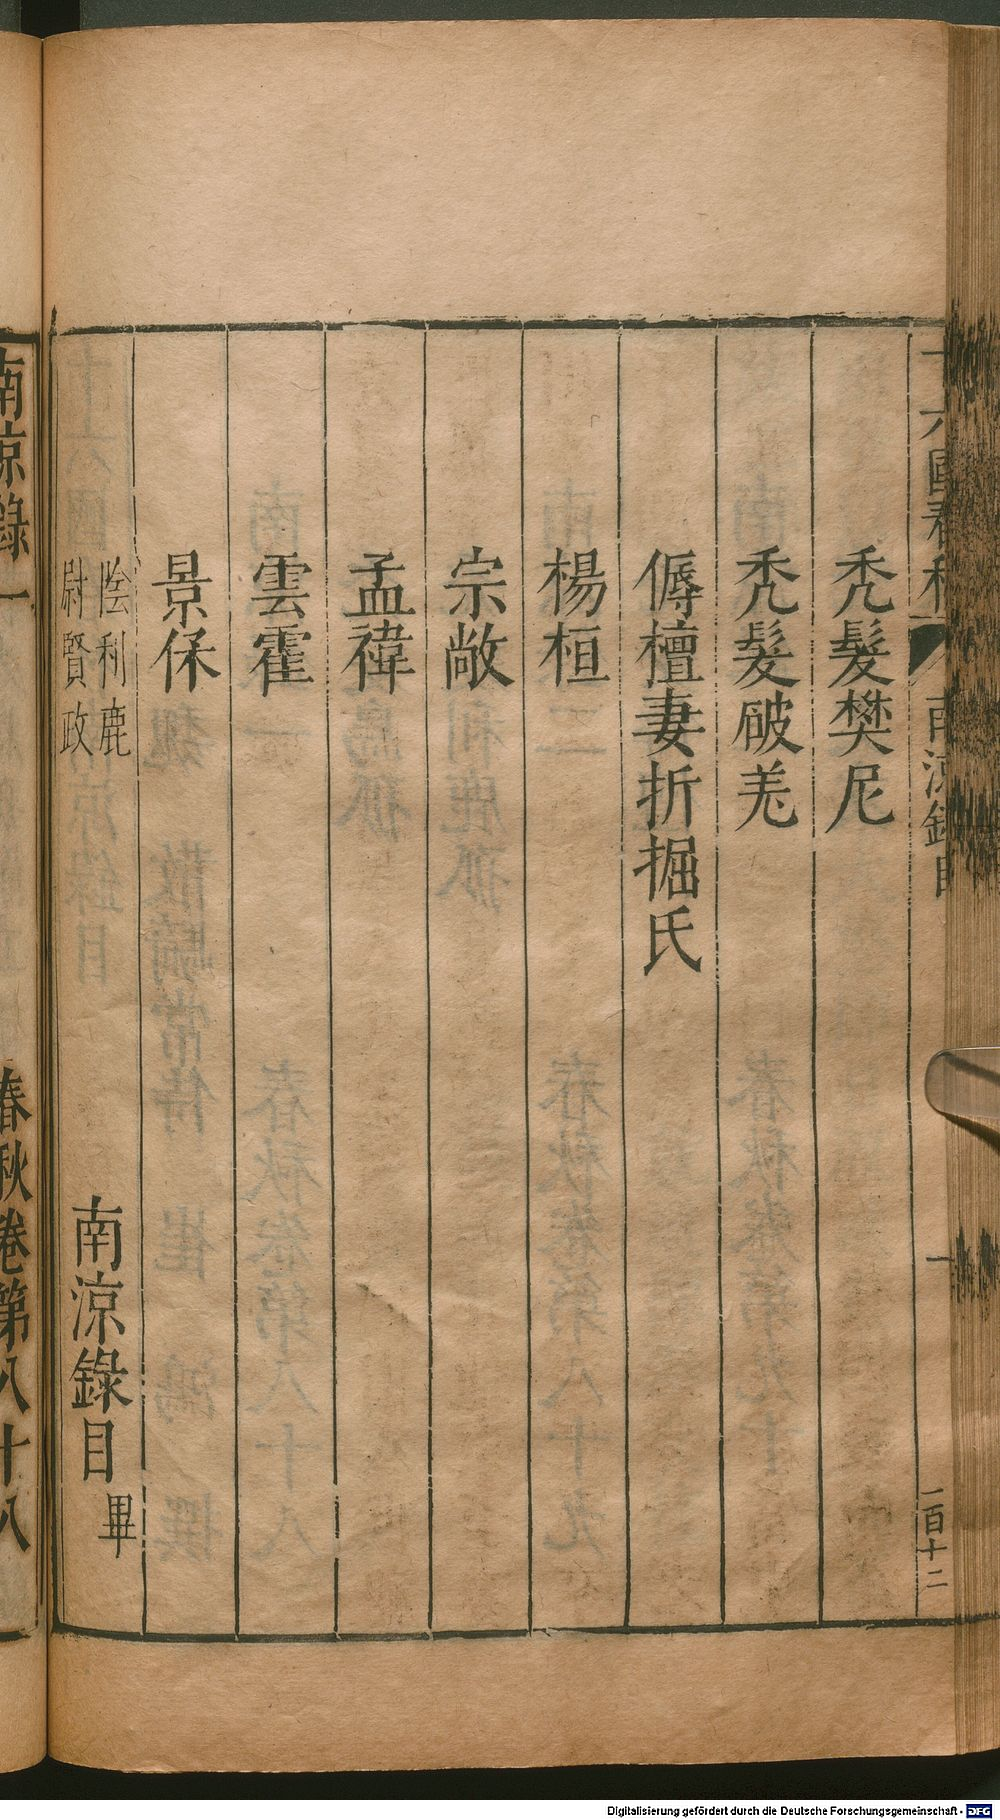 十六國春秋 南涼錄目 一 一百十二
禿髮樊尼
禿髮破羌
傉檀妻折掘氏
楊桓
宗敞
孟禕
雲霍
景保
陰利鹿
尉賢政
南涼錄目畢
南涼錄一 春秋卷第八十八
Digitalisierung gefördert durch die Deutsche Forschungsgemeinschaft - DFG